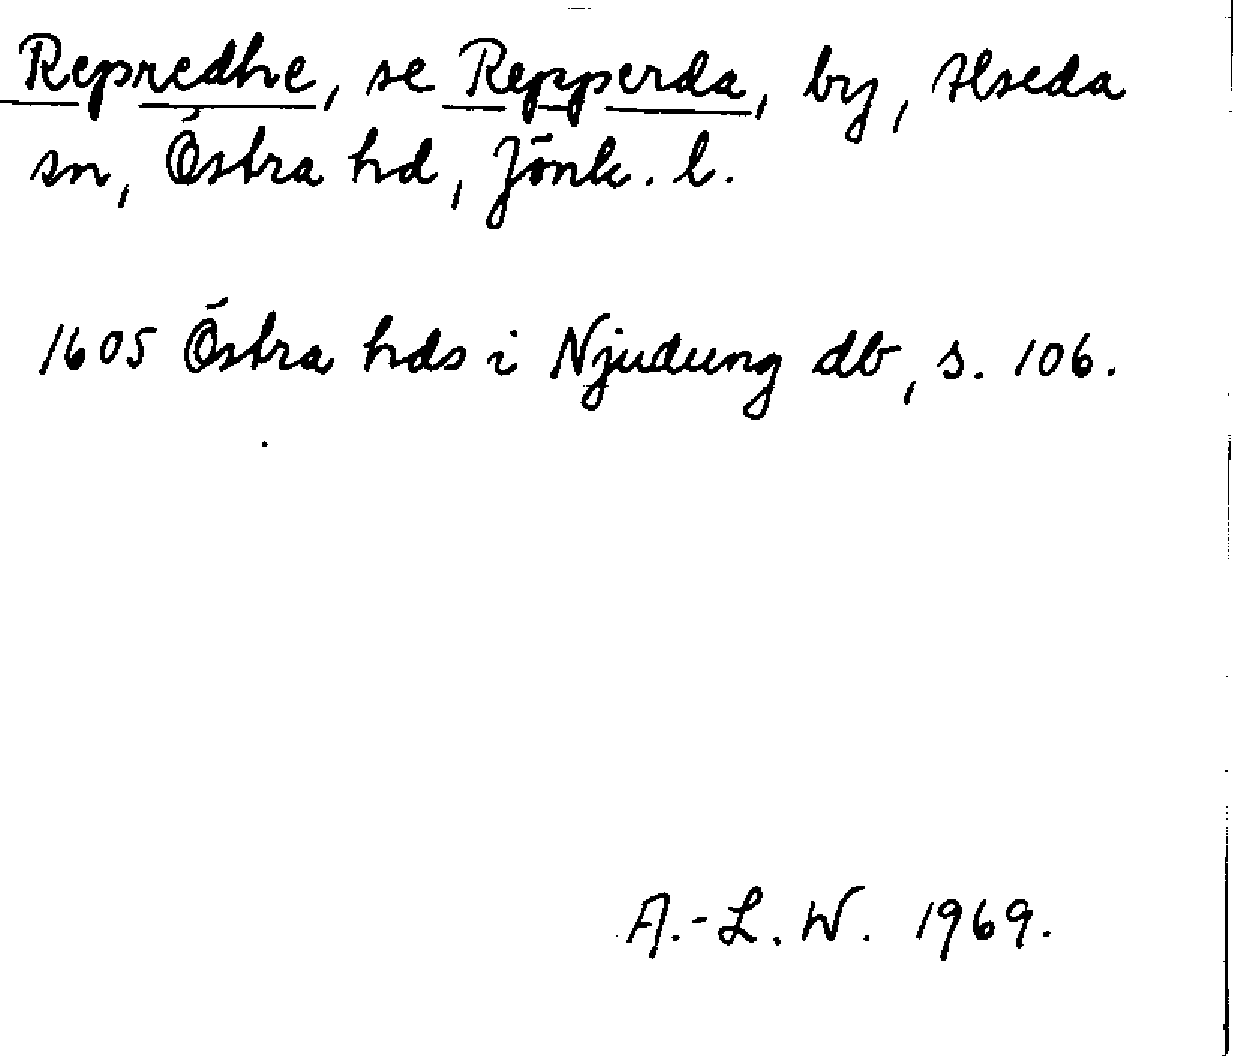 Repredhe, se Repperda, by, Alseda
sn, Östra hd, Jönk. l.
1605 Östra hds i Njudung db, s. 106.
A.-L. W. 1969.